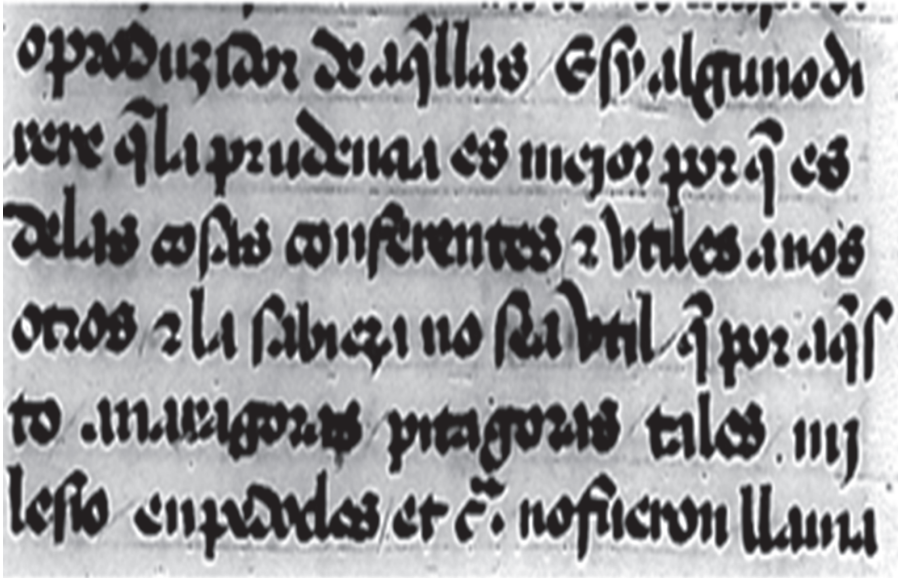 o produzidor de aq̃llas E sy alguno di
xere q̃ la prudencia es mejor por q̃ es
delas cosas conferentes ⁊ vtiles anos
otros ⁊ la sabieza no sea vtil q̃ por aq̃s
to anaxagoras pitagoras tales mj
lesio enpedocles et c̃. no fueron llama